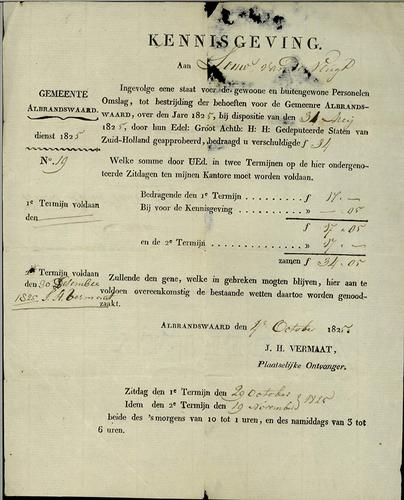 KENNISGEVING.
Aan
GEMEENTE
ALBRANDSWAARD.
dienst 1825
Ingevolge eene staat voor de gewoone en buitengewone Personelen
Omslag, tot bestrijding der behoeften voor de Gemeenre ALBRANDS-
WAARD, over den Jare 1825, bij dispositie van den 31 Meij
1825, door hun Edel: Groot Achtb: H: H: Gedeputeerde Staten van
Zuid-Holland geapprobeerd, bedraagd u verschuldigde ƒ 34
No. 19
Welke somme door UEd. in twee Termijnen op de hier ondergeno-
teerde Zitdagen ten mijnen Kantore moet worden voldaan.
1e Termijn voldaan
den
Bedragende den 1e Termijn ƒ 17.—
Bij voor de Kennisgeving » —.05
ƒ 17.05
en de 2e Termijn » 17.—
zamen ƒ 34.05
2e Termijn voldaan
den 30 December
1825 J H Vermaat
Zullende den gene, welke in gebreken mogten blijven, hier aan te
voldoen overeenkomstig de bestaande wetten daartoe worden genood-
zaakt.
ALBRANDSWAARD den 4e October 1825
J. H. VERMAAT,
Plaatselijke Ontvanger.
Zitdag den 1e Termijn den 29 October
Idem den 2e Termijn den 19 November 1825
beide des 's morgens van 10 tot 1 uren, en des namiddags van 3 tot
6 uren.